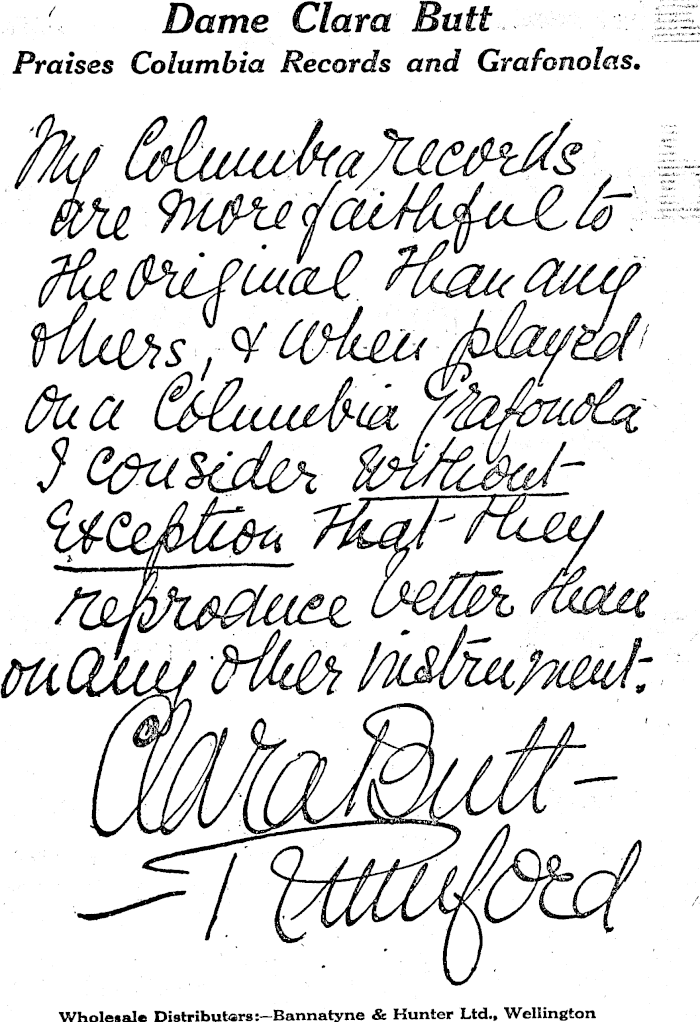 Dame Clara Butt
Praises Columbia Records and Grafonolas.
My Columbia records
are more faithful to
the original than any
others, & when played
on a Columbia Grafonola
I consider without
exception that they
reproduce better than
on any other instrument.
Clara Butt-
Rumford
Wholesale Distributers:—Bannatyne & Hunter Ltd., Wellington